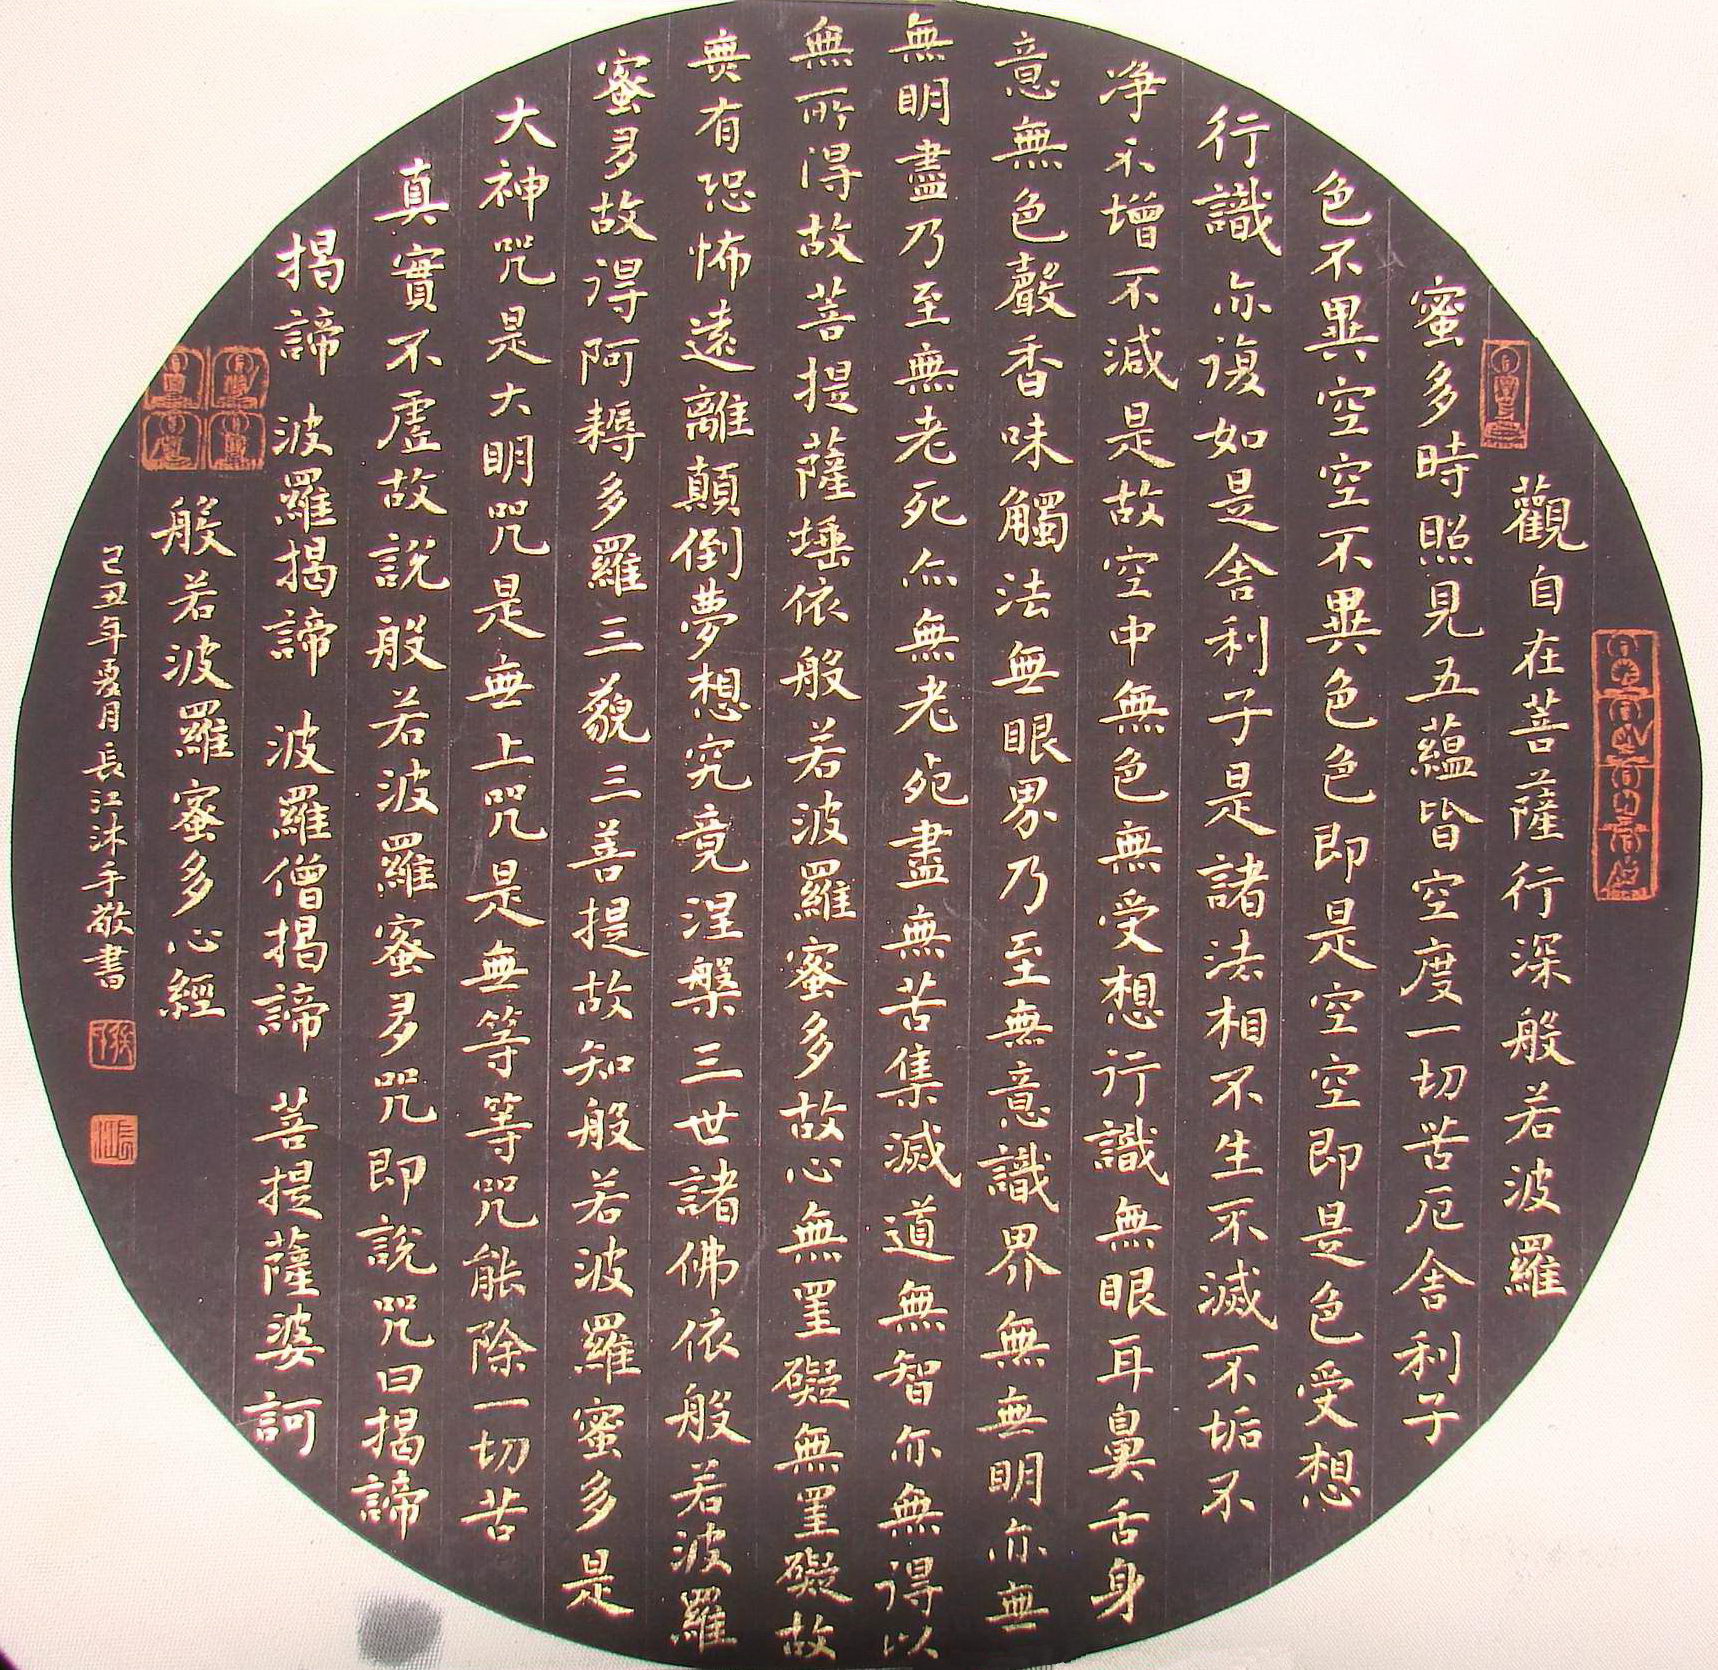 觀自在菩薩行深般若波羅
蜜多時照見五蘊皆空度一切苦厄舍利子
色不異空空不異色色即是空空即是色受想
行識亦復如是舍利子是諸法相不生不滅不垢不
净不增不減是故空中無色無受想行識無眼耳鼻舌身
意無色聲香味觸法無眼界乃至無意識界無無明亦無
無明盡乃至無老死亦無老死盡無苦集滅道無智亦無得以
無所得故菩提薩埵依般若波羅蜜多故心無罣礙無罣礙故
無有恐怖遠離顛倒夢想究竟涅槃三世諸佛依般若波羅
蜜多故得阿耨多羅三藐三菩提故知般若波羅蜜多是
大神咒是大明咒是無上咒是無等等咒能除一切苦
真實不虛故說般若波羅蜜多咒即說咒曰揭諦
揭諦 波羅揭諦 波羅僧揭諦 菩提薩婆訶
般若波羅蜜多心經
己丑年夏月長江沐手敬書
長江